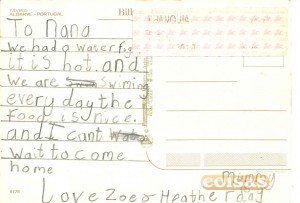 ALGARVE - PORTUGAL
To Nana
We had a water fig
it is hot. and
We are swiming
every day the
food is nice.
and I cant
wait to come
home
Mummy
Love Zoe & Heather Day
coisas